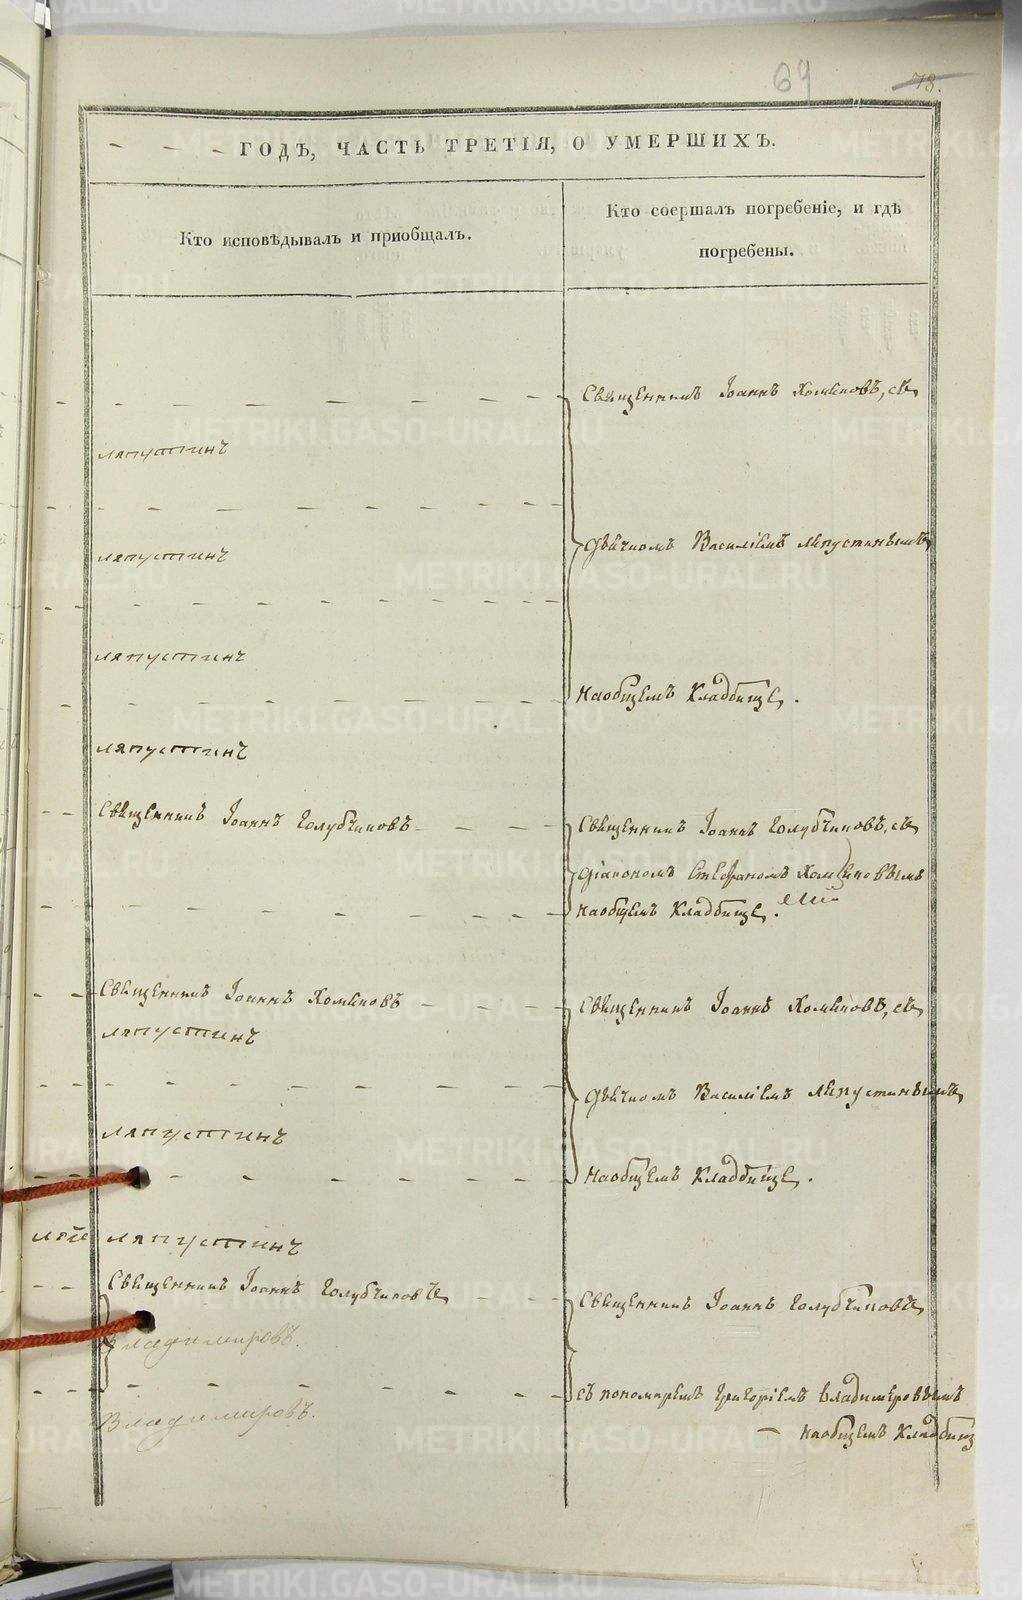 69
78.
ГОДЪ, ЧАСТЬ ТРЕТІЯ, О УМЕРШИХЪ.
Кто исповѣдывалъ и пріобщалъ.
Кто соершалъ погребеніе, и гдѣ
погребены.
Священникъ Іоаннъ Хомяковъ, съ
ляпустинъ
ляпустинъ
дьячкомъ Василіемъ Ляпустинымъ
ляпустинъ
на общемъ кладбище.
ляпустинъ
Священникъ Іоаннъ Голубчиковъ
Священникъ Іоаннъ Голубчиковъ, съ
діакономъ Стефаномъ Хомяковымъ
на общемъ кладбище.
Священникъ Іоаннъ Хомяковъ
Священникъ Іоаннъ Хомяковъ, съ
ляпустинъ
дьячкомъ Василіемъ Ляпустинымъ
ляпустинъ
на общемъ кладбище.
ляпустинъ
Священникъ Іоаннъ Голубчиковъ
Священникъ Іоаннъ Голубчиковъ
Владимировъ.
съ пономаремъ Григоріемъ Владимировымъ
Владимировъ.
на общемъ кладбищ
METRIKI.GASO-URAL.RU